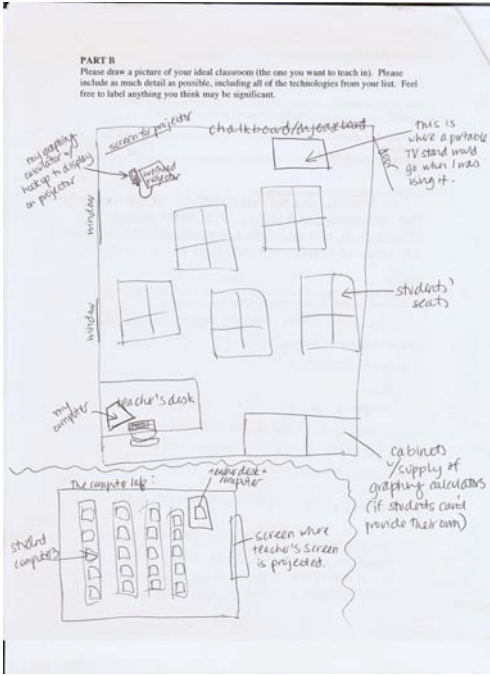 PART B
Please draw a picture of your ideal classroom (the one you want to teach in). Please
include as much detail as possible, including all of the technologies from your list. Feel
free to label anything you think may be significant.
screen for projector
chalkboard/dryerase board
my graphing
calculator w/
hookup to display
on projector
overhead
projector
door
this is
where a portable
TV stand would
go when I was
using it.
window
window
students'
seats
teacher's desk
my
computer
cabinets
w/supply of
graphing calculators
(if students can't
provide their own)
The computer lab:
teacher desk +
computer
student
computers
screen where
teacher's screen
is projected.